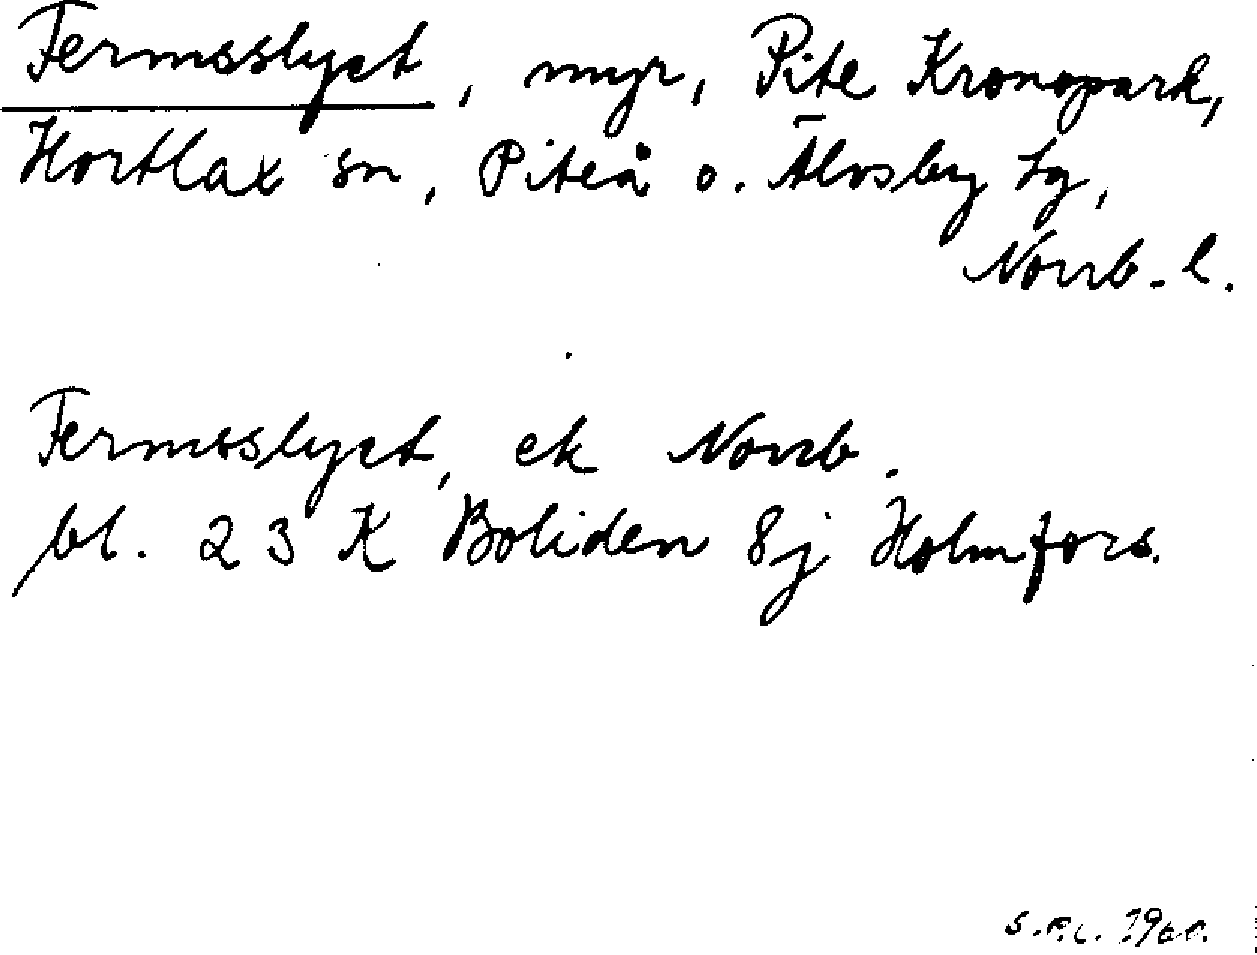 Fermsslyet, myr, Pite Kronopark,
Hortlax sn, Piteå o. Älvsby tg,
Norrb. l.
Fermsslyet, ek Norrb.
bl. 23 K Boliden 8j Holmfors.
1960.